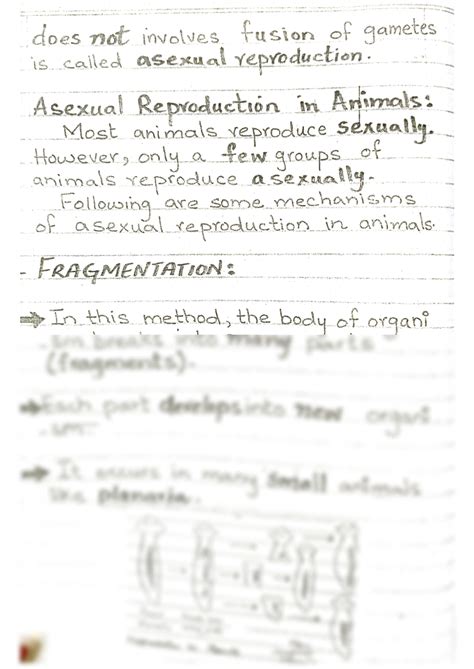 does not involves fusion of gametes
is called asexual reproduction.
Asexual Reproduction in Animals:
Most animals reproduce sexually.
However, only a few groups of
animals reproduce asexually.
Following are some mechanisms
of asexual reproduction in animals.
- FRAGMENTATION:
⇒ In this method, the body of organi
sm breaks into many parts
(fragments).
Each part develops into new organi
sm.
⇒ It occurs in many small animals
like planaria.